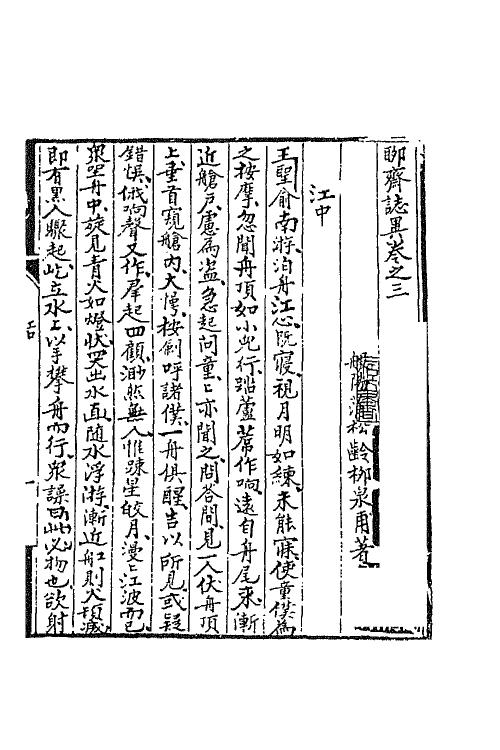 聊齋誌異卷之三
松齡柳泉甫著
江中
王聖俞南游泊舟江心既寢視月明如練未能寐使童僕為
之按摩忽聞舟頂如小兒行踏蘆蓆作响遠自舟尾來漸
近艙户慮為盗急起問童〻亦聞之問答間見一人伏舟頂
上垂首窺艙內大愕按劍呼諸僕一舟俱醒告以所見或疑
錯悞俄响聲又作羣起四顧渺然無人惟疎星皎月漫〻江波而已
衆坐舟中旋見青火如燈狀突出水面随水浮游漸近舡則火頓滅
即有黑人驟起屹立水上以手攀舟而行衆譟曰此必物也欲射